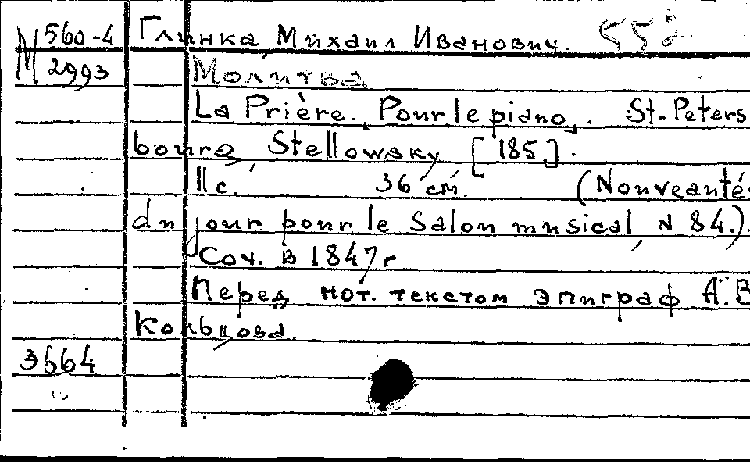 560-4 Глинка Михаил Иванович. 552
М 2993 Молитва
La Prière. Pour le piano. St.-Peters
bourg, Stellowsky [185].
11 с. 36 см. (Nouveautés
du jour pour le Salon musical, N 84.).
Соч. в 1847 г
Перед нот. текстом эпиграф А.В
Кольцова
3664